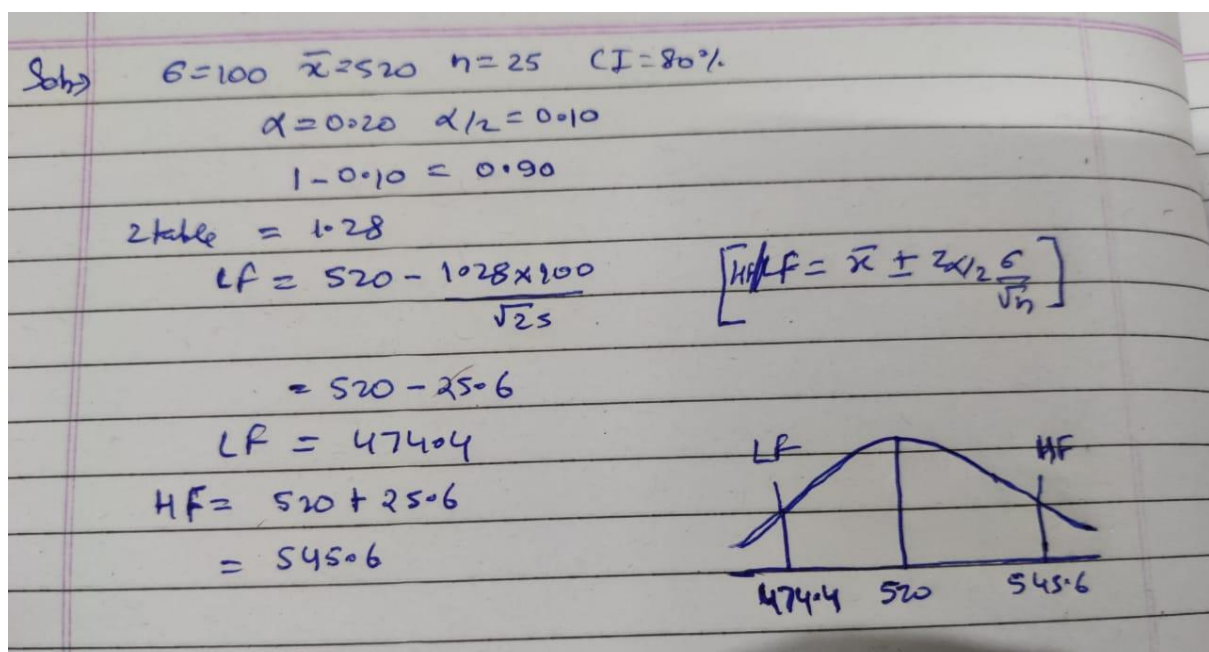 Soln→ σ=100 x̄=520 n=25 CI=80%
α=0.20 α/2=0.10
1-0.10 = 0.90
Ztable = 1.28
LF = 520 - 1.28×100/√25 [HF/LF = x̄ ± Zα/2 σ/√n]
= 520 - 25.6
LF = 474.4
HF= 520 + 25.6
= 545.6
LF HF
474.4 520 545.6